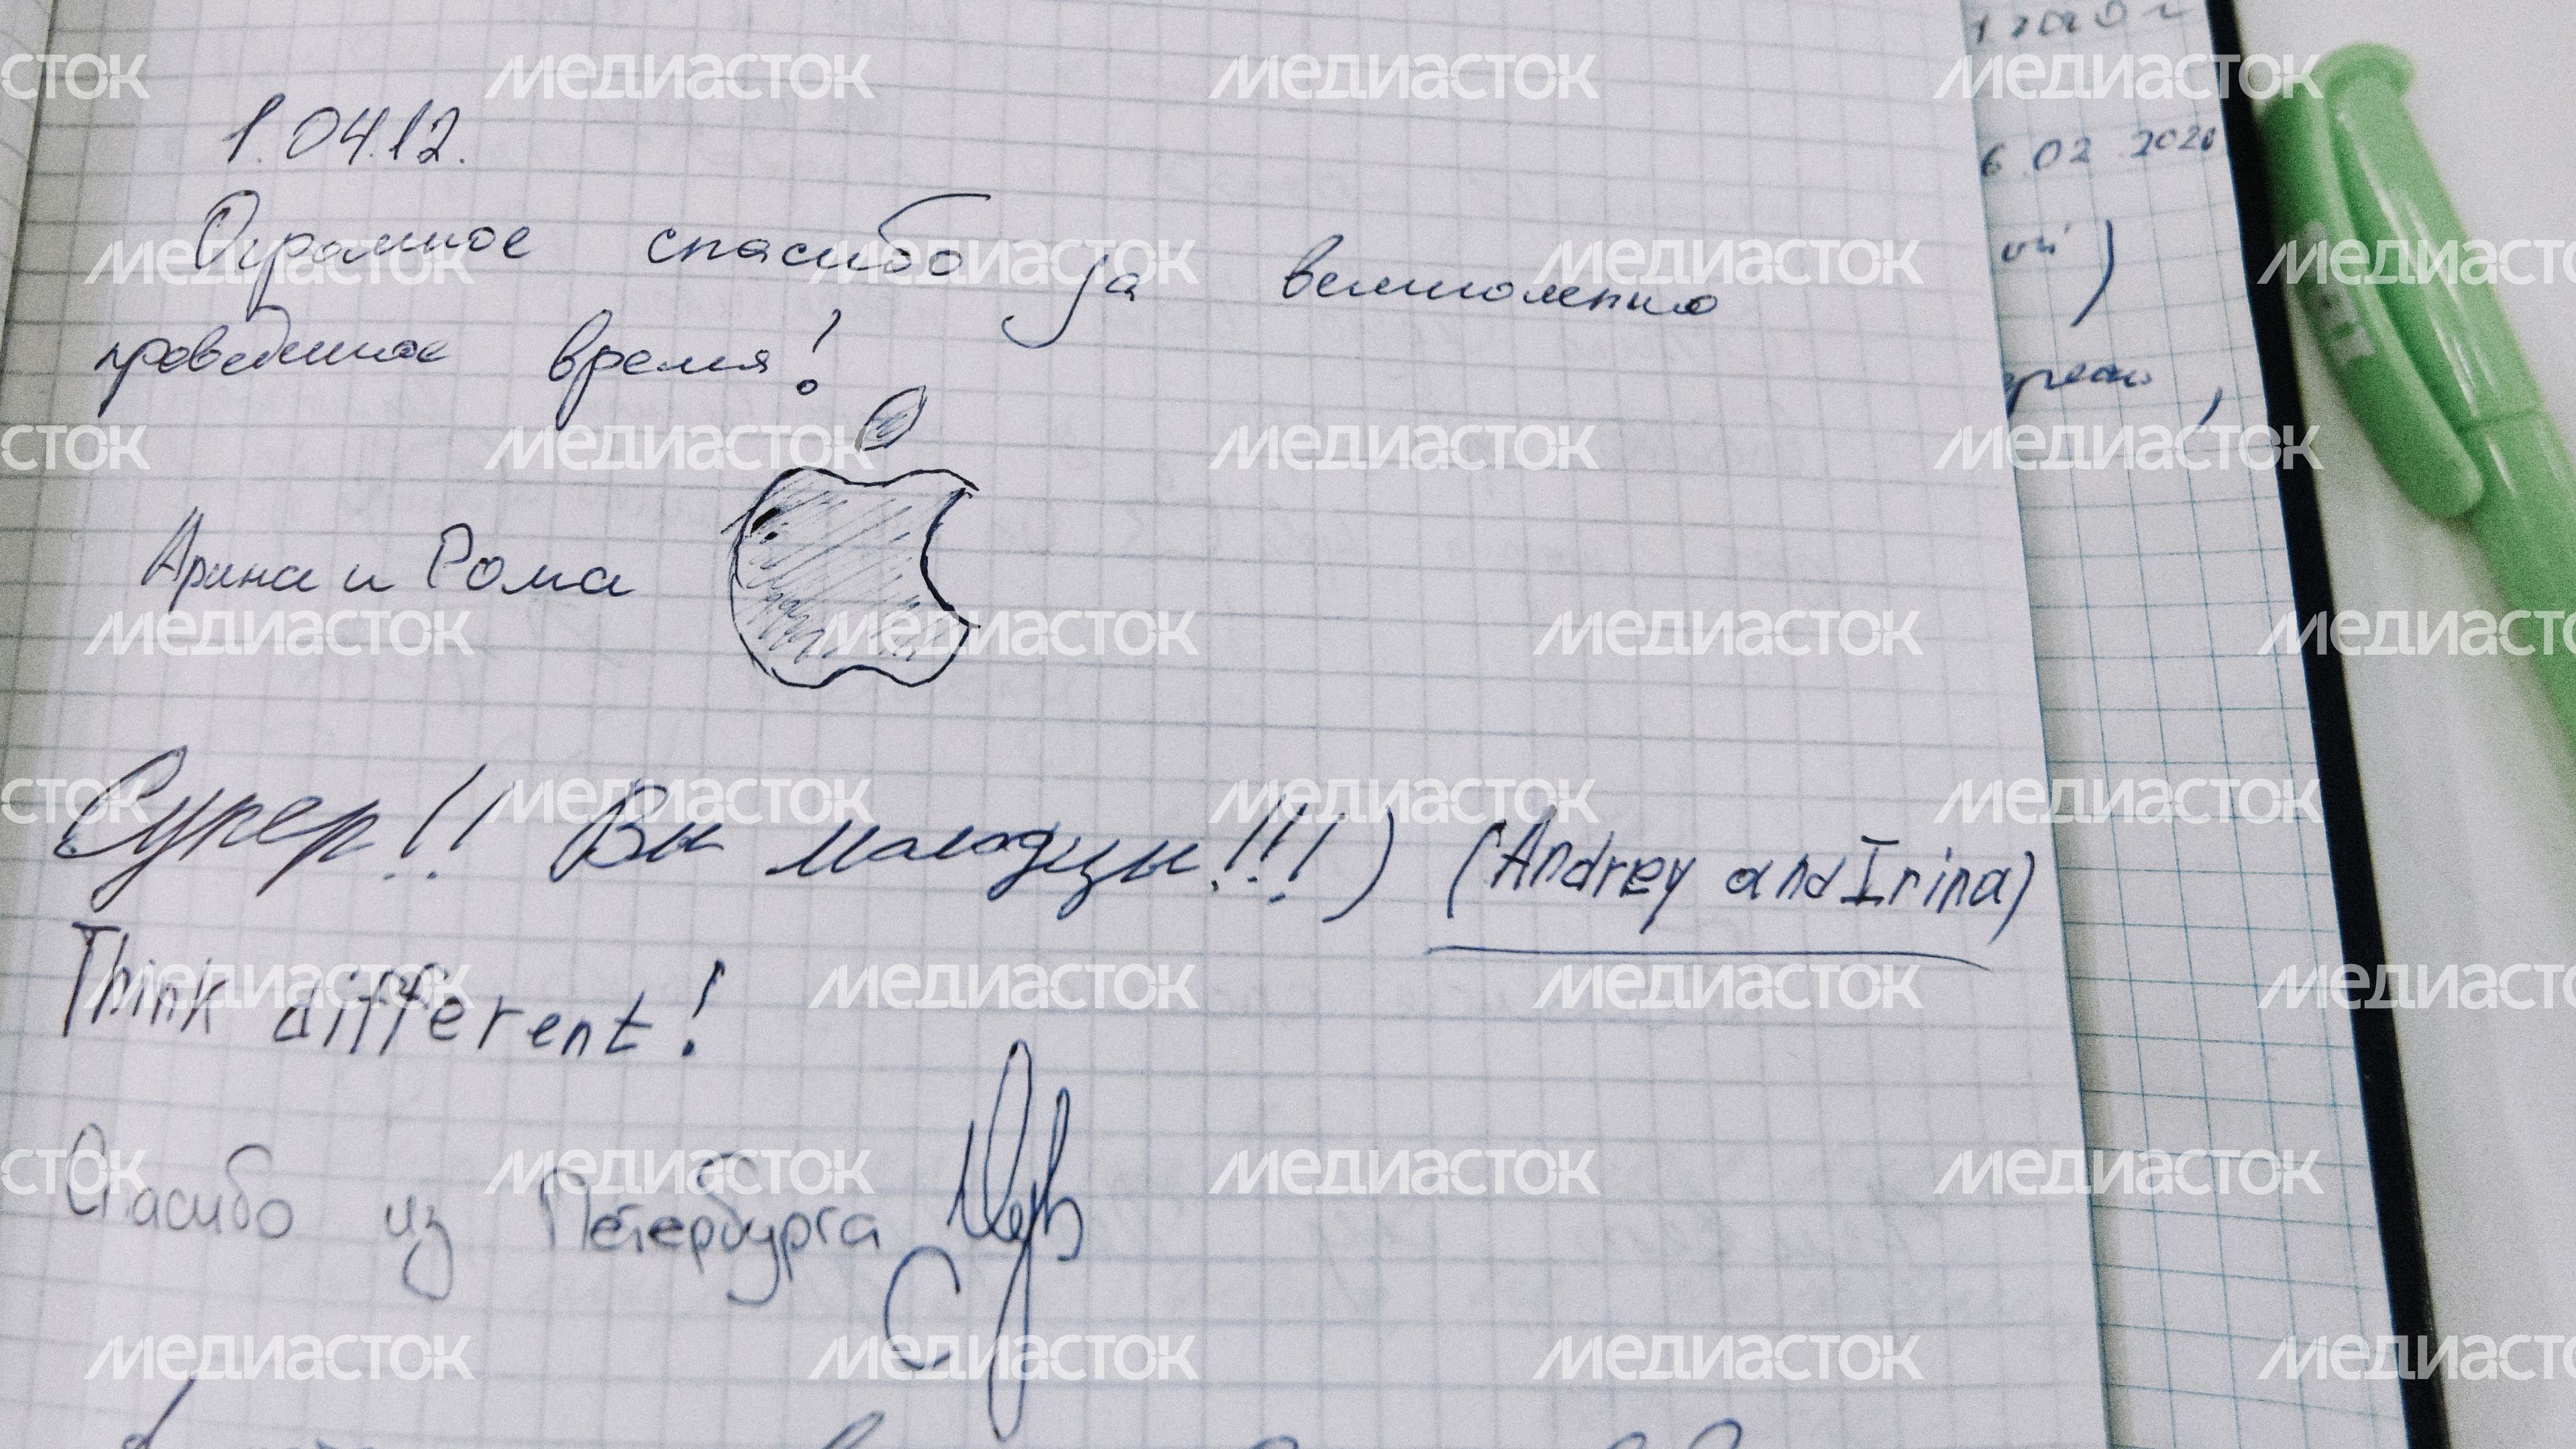 1.04.12.
Огромное спасибо за великолепно
проведенное время!
Арина и Рома
Супер!! Вы молодцы!!!) (Andrey and Irina)
Think different!
Спасибо из Петербурга
6.02.2020
МЕДИАСТОК